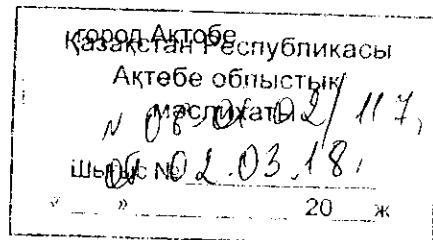 город Актобе
Қазақстан Республикасы
Ақтөбе облыстық
мәслихаты
N 08-01-02/117,
Шығыс №
от 02.03.18.
« » 20 ж